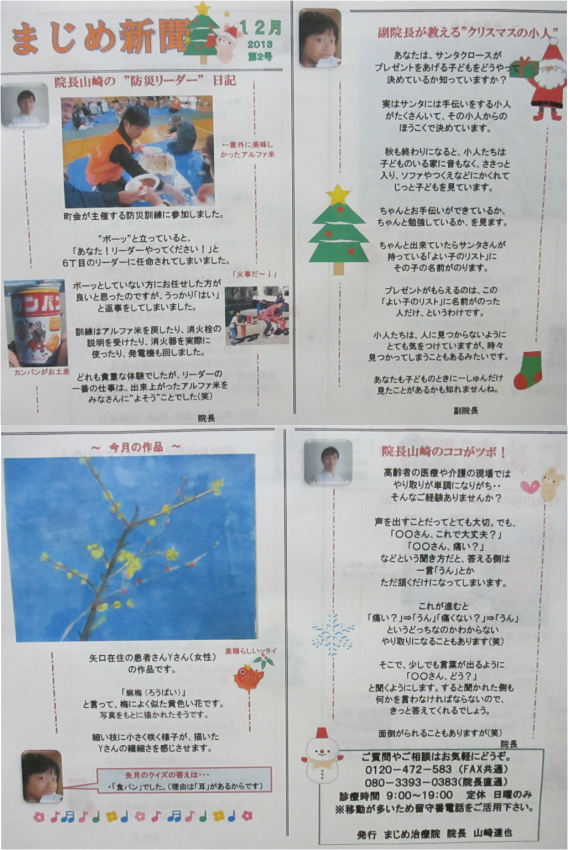 まじめ新聞
12月
2013
第2号
院長山崎の "防災リーダー" 日記
←意外に美味し
かったアルファ米
町会が主催する防災訓練に参加しました。
"ボーッ"と立っていると、
「あなた！リーダーやってください！」と
6丁目のリーダーに任命されてしまいました。
「火事だ～！」
ボーッとしていない方にお任せした方が
良いと思ったのですが、うっかり「はい」
と返事をしてしまいました。
カンパン
カンパンがお土産
訓練はアルファ米を戻したり、消火栓の
説明を受けたり、消火器を実際に
使ったり、発電機も回しました。
どれも貴重な体験でしたが、リーダーの
一番の仕事は、出来上がったアルファ米を
みなさんに"よそう"ことでした(笑)
院長
副院長が教える"クリスマスの小人"
あなたは、サンタクロースが
プレゼントをあげる子どもをどうやって
決めているか知っていますか？
実はサンタには手伝いをする小人
がたくさんいて、その小人からの
ほうこくで決めています。
秋も終わりになると、小人たちは
子どものいる家に音もなく、ささっと
入り、ソファやつくえなどにかくれて
じっと子どもを見ています。
ちゃんとお手伝いができているか、
ちゃんと勉強しているか、を見ます。
ちゃんと出来ていたらサンタさんが
持っている「よい子のリスト」に
その子の名前がのります。
プレゼントがもらえるのは、この
「よい子のリスト」に名前がのった
人だけ、というわけです。
小人たちは、人に見つからないように
とても気をつけていますが、時々
見つかってしまうこともあるみたいです。
あなたも子どものときに一しゅんだけ
見たことがあるかも知れませんね。
副院長
～ 今月の作品 ～
矢口在住の患者さんYさん(女性)
の作品です。
素晴らしいッタイ
「蝋梅（ろうばい）」
と言って、梅によく似た黄色い花です。
写真をもとに描かれたそうです。
細い枝に小さく咲く様子が、描いた
Yさんの繊細さを感じさせます。
先月のクイズの答えは・・・
・「食パン」でした。（理由は「耳」があるからです）
院長山崎のココがツボ！
高齢者の医療や介護の現場では
やり取りが単調になりがち・・
そんなご経験ありませんか？
声を出すことだってとても大切。でも、
「〇〇さん、これで大丈夫？」
「〇〇さん、痛い？」
などという聞き方だと、答える側は
一言「うん」とか
ただ頷くだけになってしまいます。
これが進むと
「痛い？」⇒「うん」「痛くない？」⇒「うん」
というどっちなのかわからない
やり取りになることもあります(笑)
そこで、少しでも言葉が出るように
「〇〇さん、どう？」
と聞くようにします。すると聞かれた側も
何かを言わなければならないので、
きっと答えてくれるでしょう。
面倒がられることもありますが(笑)
院長
ご質問やご相談はお気軽にどうぞ。
0120－472－583 （FAX共通）
080－3393－0383(院長直通)
診療時間 9:00～19:00 定休 日曜のみ
※移動が多いため留守番電話をご活用下さい。
発行 まじめ治療院 院長 山崎達也